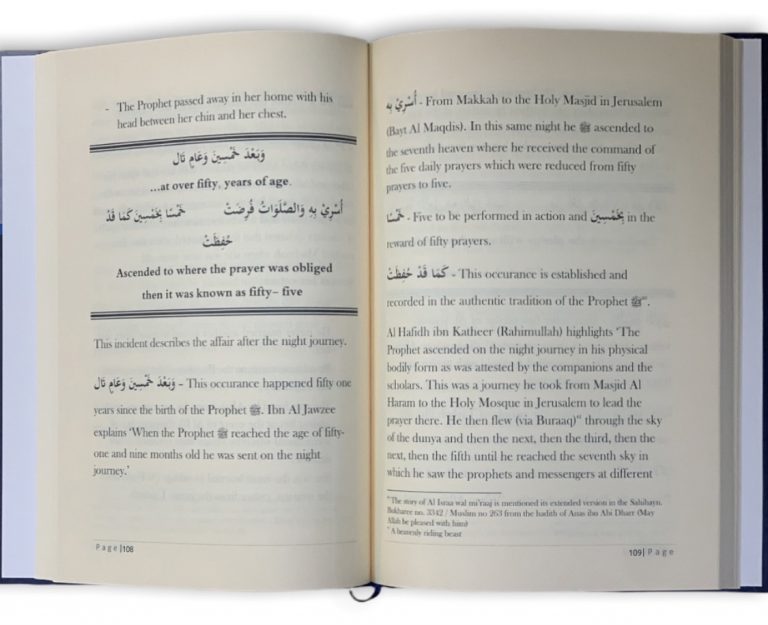 - The Prophet passed away in her home with his
head between her chin and her chest.
وَبَعْدَ خَمْسِينَ وَعَامٍ تَالِ
...at over fifty, years of age.
أُسْرِيْ بِهِ وَالصَّلَوَاتُ فُرِضَتْ خَمْسًا بِخَمْسِينَ كَمَا قَدْ
حُفِظَتْ
Ascended to where the prayer was obliged
then it was known as fifty– five
This incident describes the affair after the night journey.
وَبَعْدَ خَمْسِينَ وَعَامٍ تَالِ – This occurance happened fifty one
years since the birth of the Prophet ﷺ. Ibn Al Jawzee
explains ‘When the Prophet ﷺ reached the age of fifty-
one and nine months old he was sent on the night
journey.’
Page |108
أُسْرِيْ بِهِ - From Makkah to the Holy Masjid in Jerusalem
(Bayt Al Maqdis). In this same night he ﷺ ascended to
the seventh heaven where he received the command of
the five daily prayers which were reduced from fifty
prayers to five.
خَمْسًا - Five to be performed in action and بِخَمْسِينَ in the
reward of fifty prayers.
كَمَا قَدْ حُفِظَتْ - This occurance is established and
recorded in the authentic tradition of the Prophet ﷺ.
Al Hafidh ibn Katheer (Rahimullah) highlights ‘The
Prophet ascended on the night journey in his physical
bodily form as was attested by the companions and the
scholars. This was a journey he took from Masjid Al
Haram to the Holy Mosque in Jerusalem to lead the
prayer there. He then flew (via Buraaq) through the sky
of the dunya and then the next, then the third, then the
next, then the fifth until he reached the seventh sky in
which he saw the prophets and messengers at different
The story of Al Israa wal mi'raaj is mentioned its extended version in the Sahihayn.
Bukharee no. 3342 / Muslim no 263 from the hadith of Anas ibn Abi Dharr (May
Allah be pleased with him)
A heavenly riding beast
109| Page